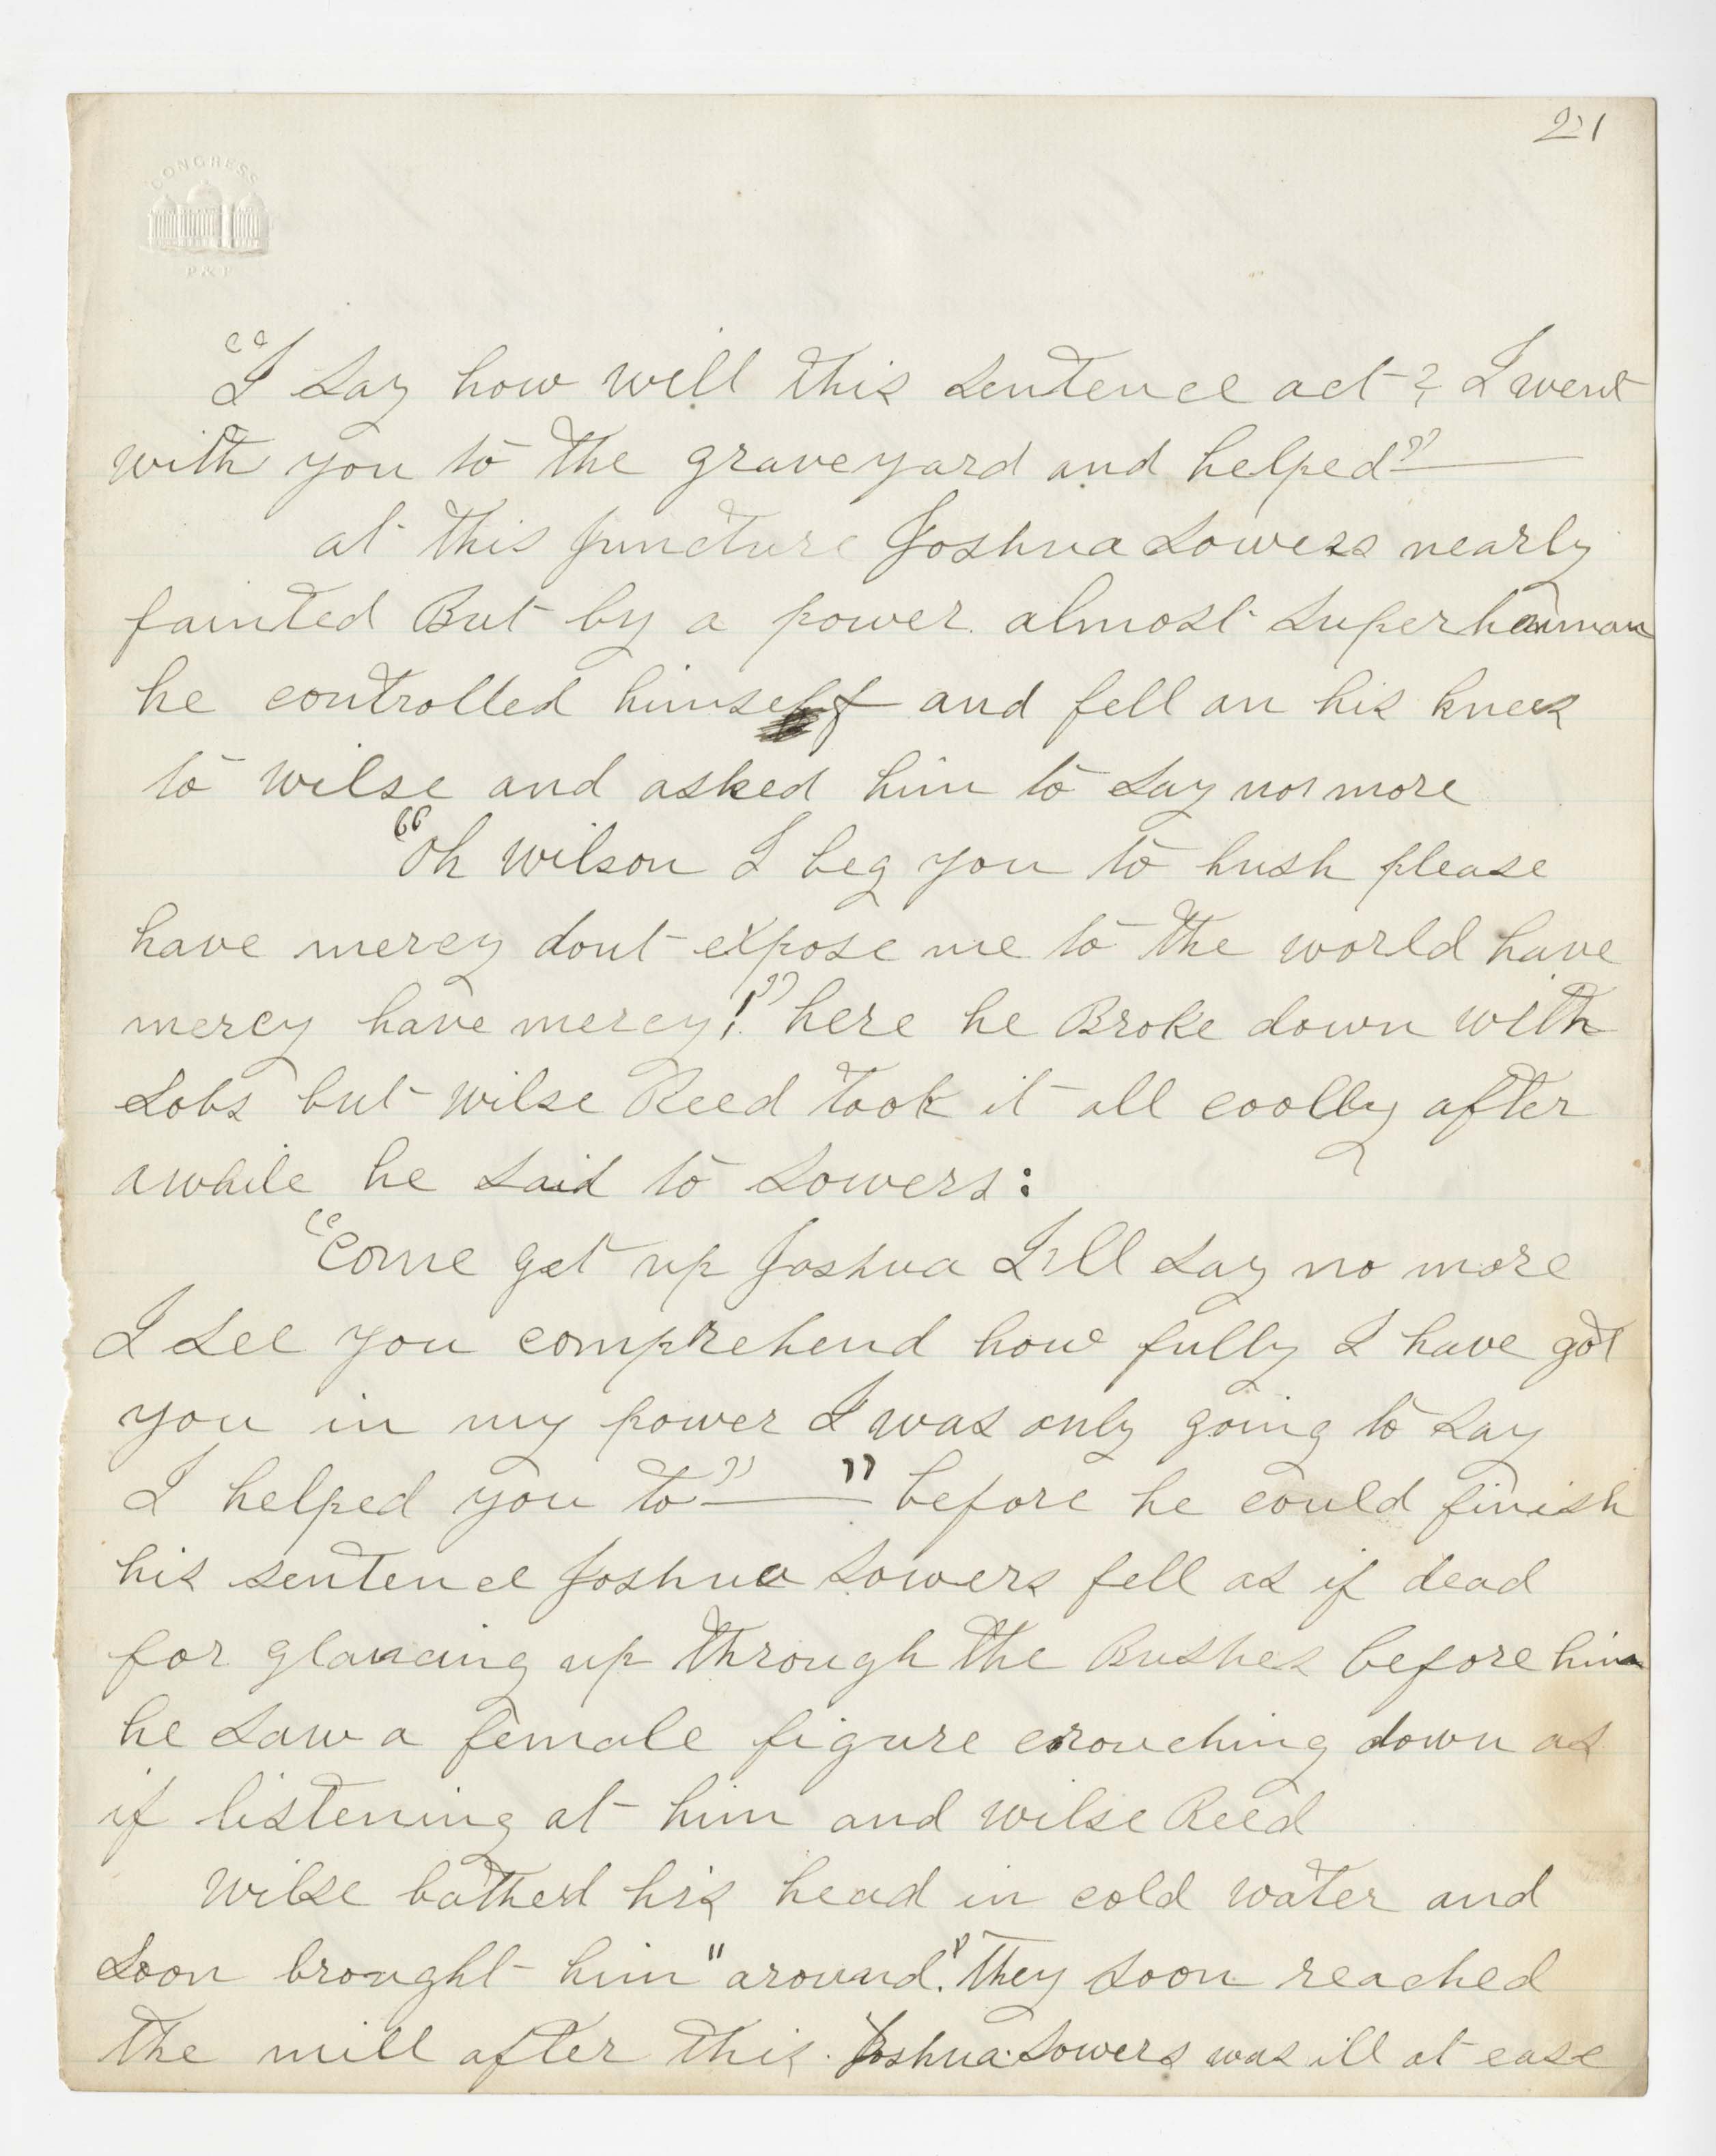 21
CONGRESS
P & P
"I say how will this sentence act? I went
with you to the graveyard and helped"—
at this juncture Joshua Sowers nearly
fainted But by a power almost superhuman
he controlled himself and fell on his knees
to wilse and asked him to say no more
"Oh wilson I beg you to hush please
have mercy dont expose me to the world have
mercy have mercy!" here he Broke down with
sobs but wilse Reed took it all coolly after
awhile he said to Sowers:
"Come get up Joshua I'll say no more
I see you comprehend how fully I have got
you in my power I was only going to say
I helped you to"—" before he could finish
his sentence Joshua Sowers fell as if dead
for glancing up through the Bushes before him
he saw a female figure crouching down as
if listening at him and wilse Reed
Wilse bathed his head in cold water and
soon brought him "around." They soon reached
the mill after this. Joshua Sowers was ill at ease